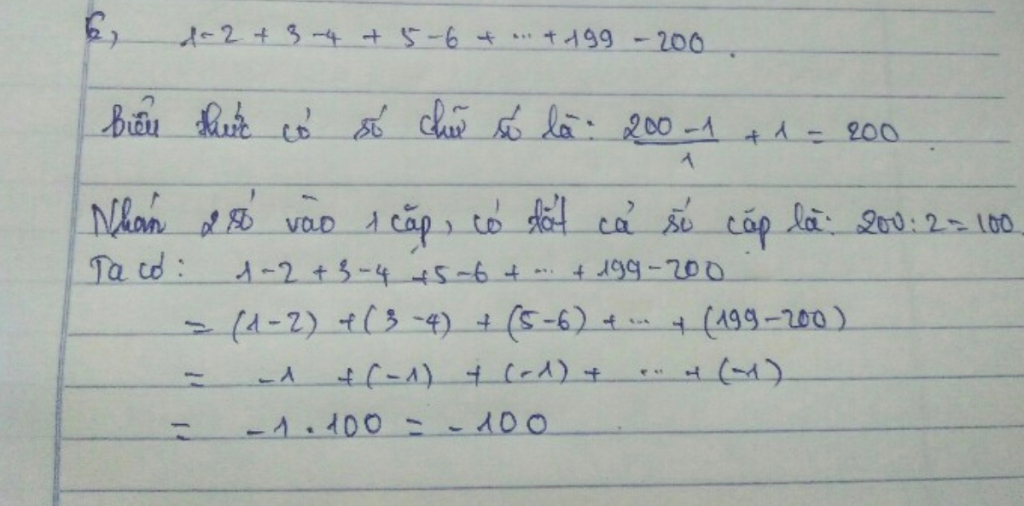 b, 1-2+3-4+5-6+...+199-200.
biểu thức có số chữ số là: \frac{200-1}{1} + 1 = 200.
Nhóm 2 số vào 1 cặp, có tất cả số cặp là: 200:2=100.
Ta có: 1-2+3-4+5-6+...+199-200
= (1-2)+(3-4)+(5-6)+...+(199-200)
= -1 +(-1) + (-1) + ... + (-1)
= -1.100 = -100